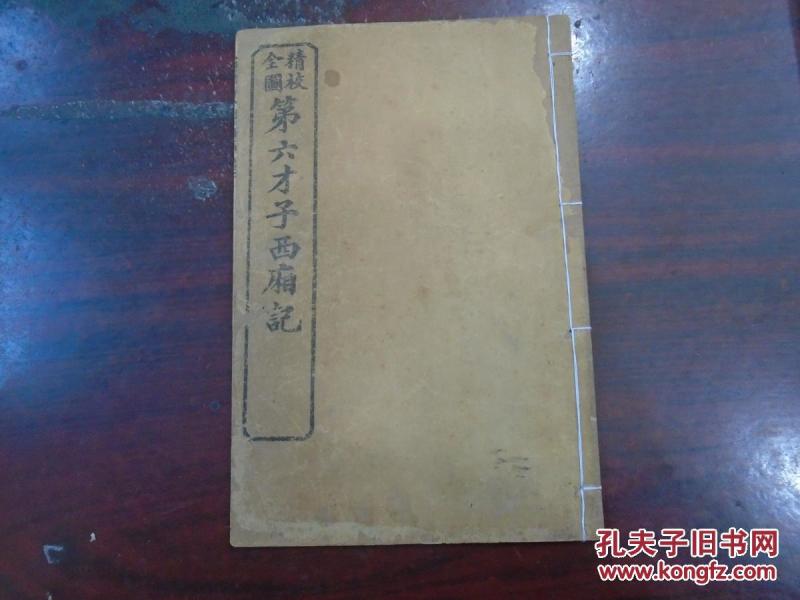 精校
全圖
第六才子西廂記
孔夫子旧书网
www.kongfz.com